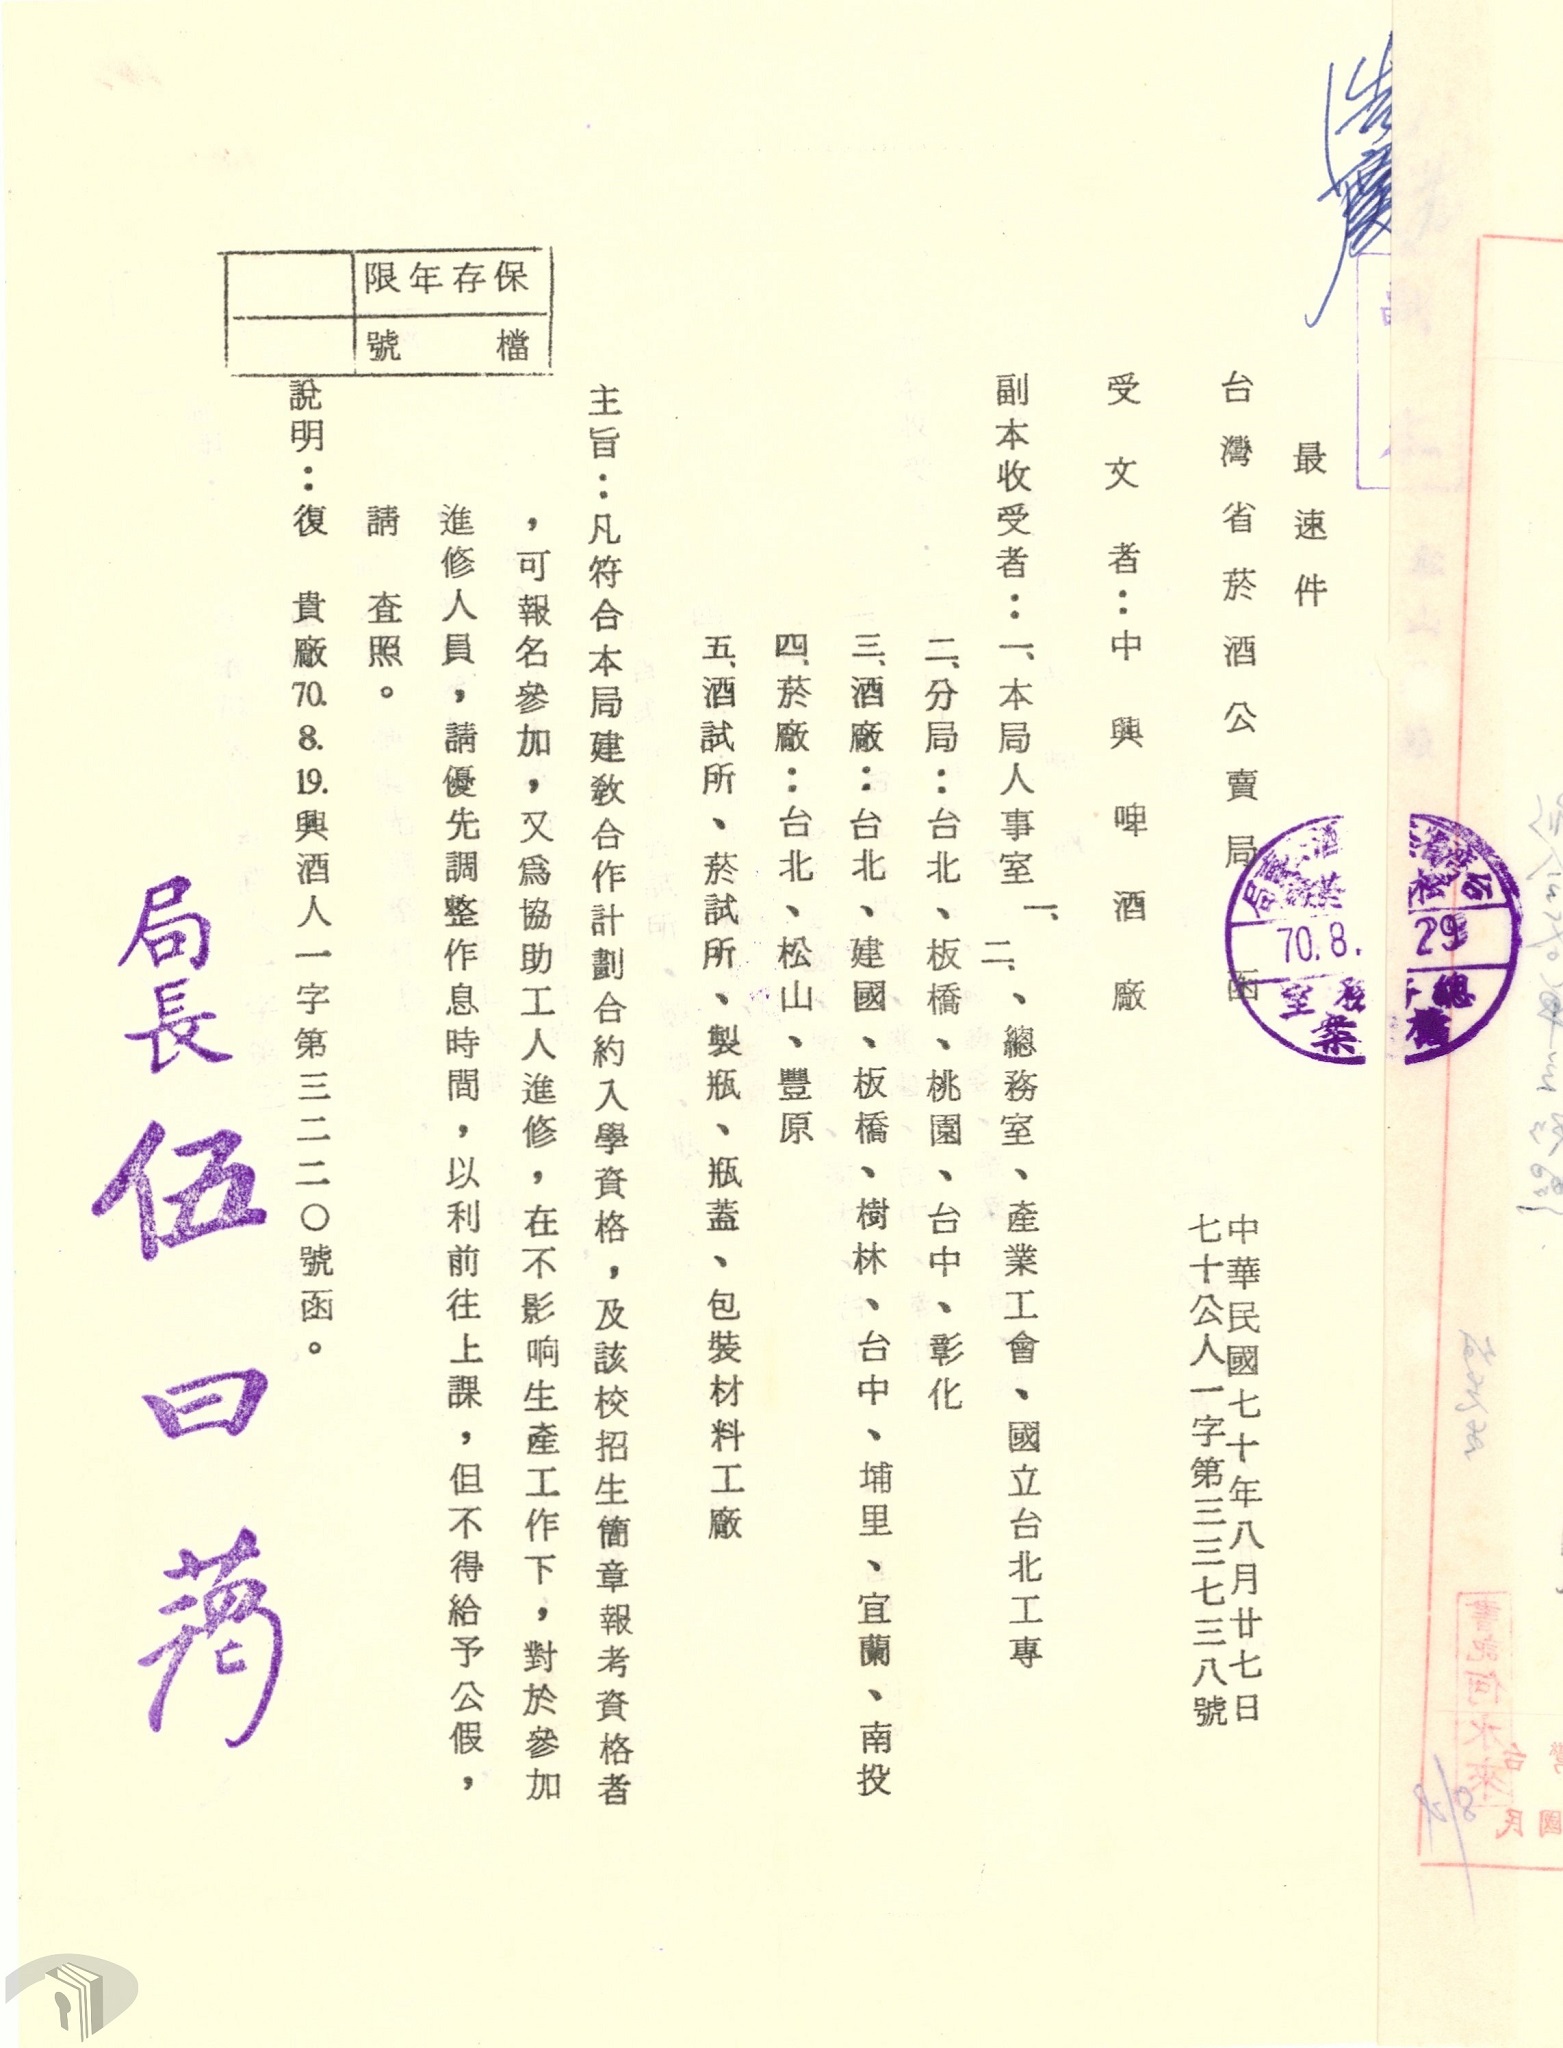 最速件
台灣省菸酒公賣局　函
中華民國七十年八月廿七日
七十公人一字第三三七三八號
受文者：中興啤酒廠
副本收受者：一、本局人事室一、二、、總務室、產業工會、國立台北工專
二、分局：台北、板橋、桃園、台中、彰化
三、酒廠：台北、建國、板橋、樹林、台中、埔里、宜蘭、南投
四、菸廠：台北、松山、豐原
五、酒試所、菸試所、製瓶、瓶蓋、包裝材料工廠
主旨：凡符合本局建敎合作計劃合約入學資格，及該校招生簡章報考資格者
，可報名參加，又爲協助工人進修，在不影响生產工作下，對於參加
進修人員，請優先調整作息時間，以利前往上課，但不得給予公假，
請　查照。
說明：復　貴廠70.8.19.興酒人一字第三二二〇號函。
保存年限
檔號
局長 伍曰藹
70.8.29
書記何水來